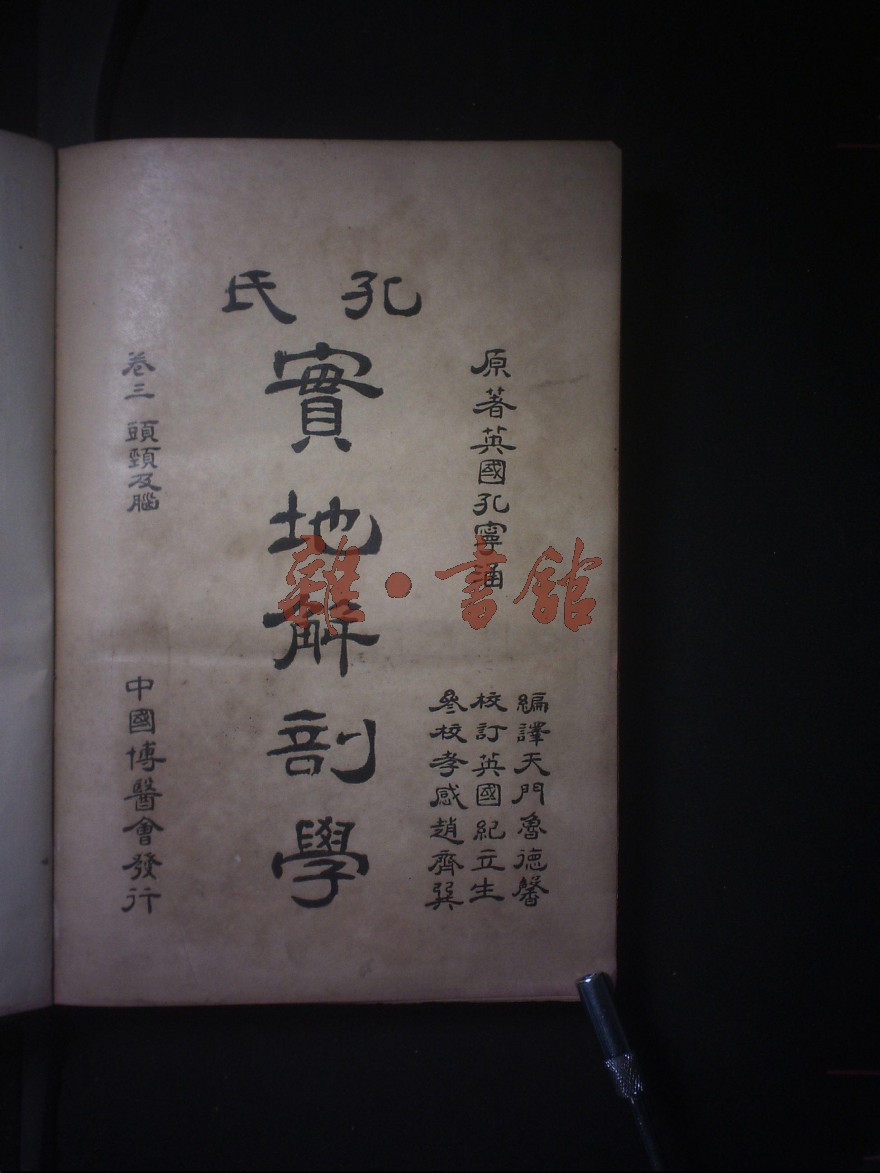 孔氏
實地解剖學
原著英國孔寧涵
編譯天門魯德馨
校訂英國紀立生
參校孝感趙齊巽
卷三 頭頸及腦
中國博醫會發行
雜·書館